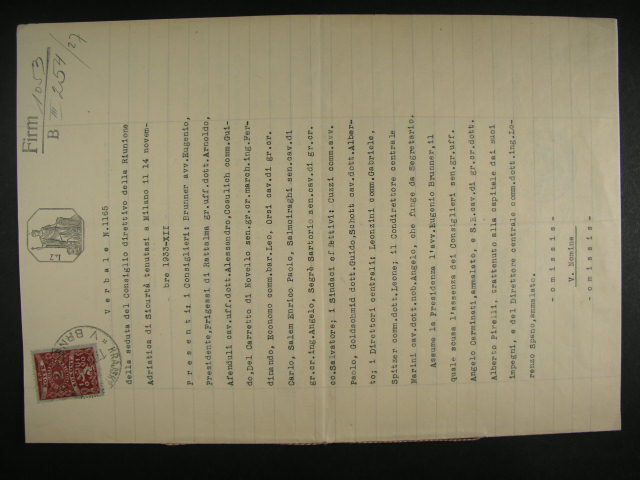 Firm 1053
B III 254/27
L.2
V e r b a l e  N.1165
della seduta del Consiglio direttivo della Riunione
Adriatica di Sicurtà tenutasi a Milano il 14 novem-
bre 1933-XII
p r e s e n t i; i Consiglieri: Brunner avv.Eugenio,
Presidente,Frigessi di Rattalma gr.uff.dott.Arnoldo,
Afenduli cav.uff.dott.Alessandro,Cosulich comm.Gui-
do,Del Carretto di Novello sen.gr.cr.march.ing.Fer-
dinando, Economo comm.bar.Leo, Orsi cav.di gr.cr.
Carlo, Salem Enrico Paolo, Salmoiraghi sen.cav.di
gr.cr.ing.Angelo, Segrè Sartorio sen.cav.di gr.cr.
co.Salvatore; i Sindaci effettivi: Cuzzi comm.avv.
Paolo, Goldschmid dott.Guido,Schott cav.dott.Alber-
to; i Direttori centrali: Leonzini comm.Gabriele,
Spitzer comm.dott.Leone; il condirettore centrale
Marini cav.dott.nob.Angelo, che funge da Segretario.
Assume la Presidenza l'avv.Eugenio Brunner,il
quale scusa l'assenza dei Consiglieri sen.gr.uff.
Angelo Carminati,ammalato, e S.E.cav.di gr.cr.dott.
Alberto Pirelli, trattenuto alla capitale dai suoi
impegni, e del Direttore centrale comm.dott.ing.Lo-
renzo Spano,ammalato.
- o m i s s i s -
V. Nomine
- o m i s s i s -